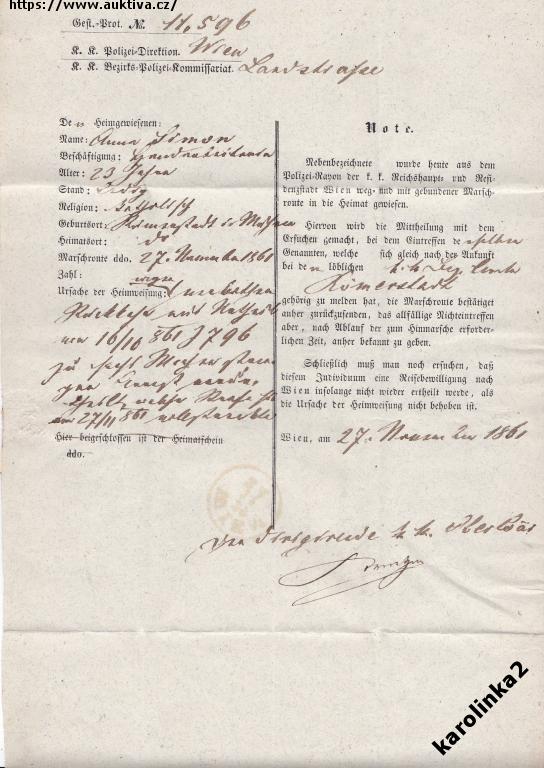 https://www.auktiva.cz/
Gest.-Prot. №. 11,596
K. K. Polizei-Direktion. Wien
K. K. Bezirks-Polizei-Kommissariat. Landstrasse
De Heimgewiesenen:
Name: Anna Simon
Beschäftigung:
Alter: 23 Jahre
Stand: ledig
Religion: katholisch
Geburtsort: Römerstadt in Mähren
Heimatsort: do
Marschroute ddo. 27. November 1861
Zahl:
Ursache der Heimweisung: wegen
16/10 861 J 796
zu sechs
am 27/11 861
Hier beigeschlossen ist der Heimatschein
ddo.
Note.
Nebenbezeichnete wurde heute aus dem
Polizei-Rayon der k. k. Reichshaupt- und Resi-
denzstadt Wien weg- und mit gebundener Marsch-
route in die Heimat gewiesen.
Hiervon wird die Mittheilung mit dem
Ersuchen gemacht, bei dem Eintreffen derselben
Genannten, welche sich gleich nach der Ankunft
bei dem löblichen k. k. Bez. Amte
Römerstadt
gehörig zu melden hat, die Marschroute bestätiget
anher zurückzusenden, das allfällige Nichteintreffen
aber, nach Ablauf der zum Hinmarsche erforder-
lichen Zeit, anher bekannt zu geben.
Schließlich muß man noch ersuchen, daß
diesem Individuum eine Reisebewilligung nach
Wien insolange nicht wieder ertheilt werde, als
die Ursache der Heimweisung nicht behoben ist.
Wien, am 27. November 1861
Der dirigirende k. k.
karolinka2